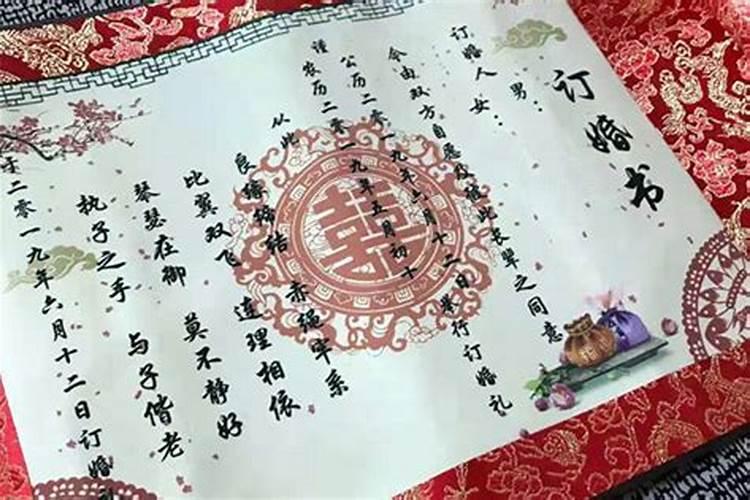 订婚书
男：
订婚人 女：
今由双方自愿及此长辈之同意
公历二零一九年六月十二日举行订婚礼
谨 农历二零一九年五月初十
从此
良缘缔结 赤绳牢系
比翼双飞 连理相依
琴瑟在御 莫不静好
执子之手 与子偕老
于二零一九年六月十二日订婚